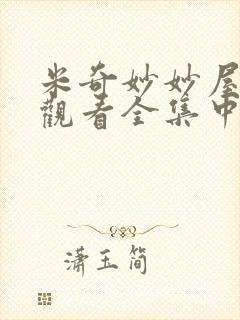 米奇妙妙屋
觀看全集中
瀟玉简